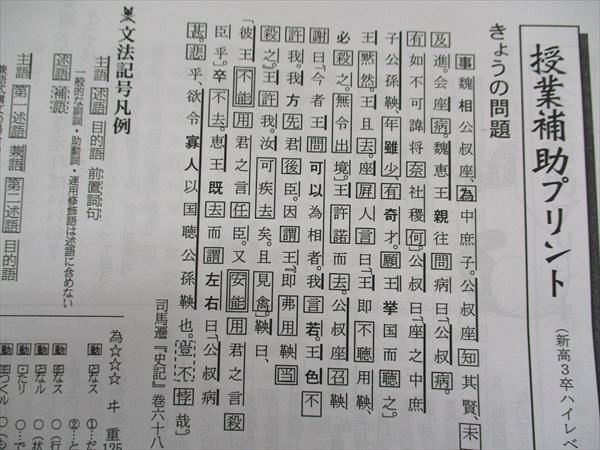 授業補助プリント(新高3卒ハイレベ
きょうの問題
事魏相公叔座、為中庶子。公叔座知其賢、未
及進。会座病。魏恵王親往問病曰、「公叔病。
有如不可諱将奈社稷何。」公叔曰、「座之中庶
子公孫鞅、年雖少、有奇才。願王挙国而聴之。」
王黙然。王且去。座屏人言曰、「王即不聴用鞅、
必殺之。無令出境。」王許諾而去。公叔座召鞅
謝曰、「今者王問可以為相者。我言若。王色不
許我。我方先君後臣。因謂王、『即弗用鞅、当
殺之。』王許我。汝可疾去矣。且見禽。」鞅曰、
「彼王不能用君之言任臣。又安能用君之言殺
臣乎。」卒不去。恵王既去而謂左右曰、「公叔病
甚。悲乎、欲令寡人以国聴公孫鞅也。豈不悖哉。」
司馬遷『史記』巻六十八
文法記号凡例
主語 述語 目的語 前置詞句
述語 補語
一般的な副詞・助動詞・連用修飾語は述語に含めない
主語 第一述語 兼語 第二述語 目的語
為☆☆☆ ヰ 重125
動 なス
動 なル
動 たり
動 つくル